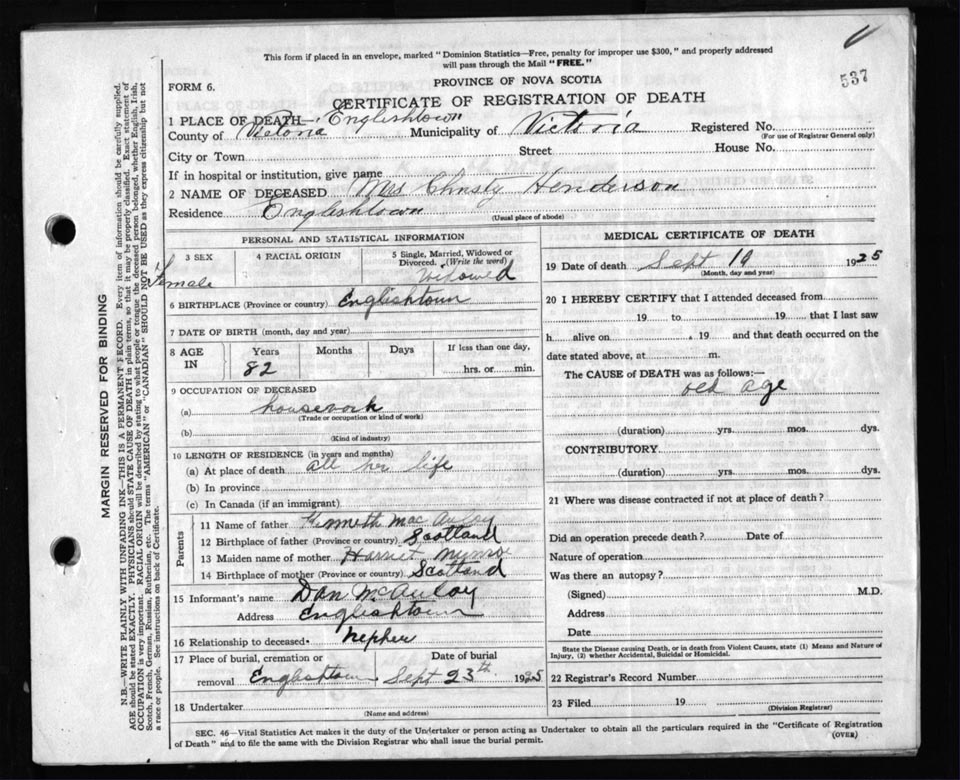 This form if placed in an envelope, marked "Dominion Statistics—Free, penalty for improper use $300," and properly addressed
will pass through the Mail "FREE."
537
FORM 6.
PROVINCE OF NOVA SCOTIA
CERTIFICATE OF REGISTRATION OF DEATH
1 PLACE OF DEATH— Englishtown
County of Victoria Municipality of Victoria Registered No.
(For use of Registrar General only)
City or Town Street House No.
If in hospital or institution, give name
2 NAME OF DECEASED Mrs Christy Henderson
Residence Englishtown
(Usual place of abode)
PERSONAL AND STATISTICAL INFORMATION
3 SEX
Female
4 RACIAL ORIGIN
5 Single, Married, Widowed or
Divorced. (Write the word)
Widowed
6 BIRTHPLACE (Province or country) Englishtown
7 DATE OF BIRTH (month, day and year)
8 AGE IN
Years Months Days If less than one day,
82 hrs. or min.
9 OCCUPATION OF DECEASED
(a) housework
(Trade or occupation or kind of work)
(b)
(Kind of industry)
10 LENGTH OF RESIDENCE (in years and months)
(a) At place of death all her life
(b) In province
(c) In Canada (if an immigrant)
Parents
11 Name of father Kenneth MacAulay
12 Birthplace of father (Province or country) Scotland
13 Maiden name of mother Harriet Munro
14 Birthplace of mother (Province or country) Scotland
15 Informant's name Dan McAulay
Address Englishtown
16 Relationship to deceased. Nephew
17 Place of burial, cremation or Date of burial
removal Englishtown Sept 23th 1925
18 Undertaker
(Name and address)
MEDICAL CERTIFICATE OF DEATH
19 Date of death Sept 19 1925
(Month, day and year)
20 I HEREBY CERTIFY that I attended deceased from
19 to 19 that I last saw
h alive on 19 and that death occurred on the
date stated above, at m.
The CAUSE of DEATH was as follows:—
old age
(duration) yrs. mos. dys.
CONTRIBUTORY
(duration) yrs. mos. dys.
21 Where was disease contracted if not at place of death?
Did an operation precede death? Date of
Nature of operation
Was there an autopsy?
(Signed) M.D.
Address
Date
State the Disease causing Death, or in death from Violent Causes, state (1) Means and Nature of
Injury, (2) whether Accidental, Suicidal or Homicidal.
22 Registrar's Record Number
23 Filed 19
(Division Registrar)
SEC. 46—Vital Statistics Act makes it the duty of the Undertaker or person acting as Undertaker to obtain all the particulars required in the "Certificate of Registration
of Death" and to file the same with the Division Registrar who shall issue the burial permit.
(OVER)
MARGIN RESERVED FOR BINDING
N.B.—WRITE PLAINLY WITH UNFADING INK—THIS IS A PERMANENT RECORD. Every item of information should be carefully supplied.
AGE should be stated EXACTLY. PHYSICIANS should STATE CAUSE OF DEATH in plain terms, so that it may be properly classified. Exact statement of
OCCUPATION is very important. RACIAL ORIGIN will be described by stating to what people or tongue the deceased person belonged, whether English, Irish,
Scotch, French, German, Russian, Ruthenian, etc. The terms "AMERICAN" or "CANADIAN" SHOULD NOT BE USED as they express citizenship but not
a race or people. See instructions on back of Certificate.